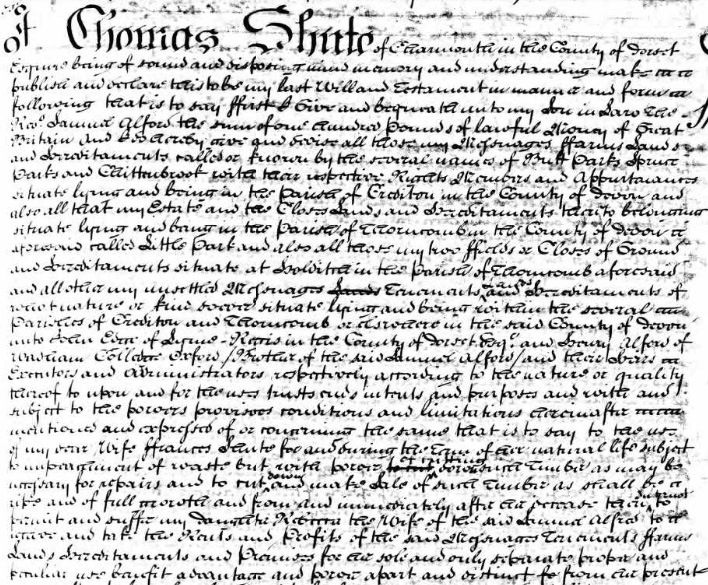 I Thomas Shute of Charmouth in the County of dorset
Esquire being of sound and disposing mind memory and understanding make
publish and declare this to be my last Will and Testament in manner and form
following that is to say ffirst I Give and bequeath unto my Son in Law The
Revd Samuel Alford the sum of one hundred Pounds of lawful Money of Great
Britain and I do hereby give and devise all those my Messuages ffarms Lands
and Hereditaments called or known by the several names of Parks
Parks and Chittenbrook with their respective Rights Members and Appurtenances
situate lying and being in the Parish of Crediton in the County of devon and
also all that my Estate and the Closes Lands and Hereditaments thereto belonging
situate lying and being in the Parish of Thorncomb in the County of devon
aforesaid called Little Park and also all those my two ffields or Closes of Ground
and Hereditaments situate at Holditch in the Parish of Thorncomb aforesaid
and all other my unsettled Messuages Tenements and Hereditaments of
what nature or kind soever situate lying and being within the several
Parishes of Crediton and Thorncomb or elsewhere in the said County of devon
unto John Edge of Lyme Regis in the County of dorset Esqr and Henry Alford of
Wadham College Oxford /Brother of the said Samuel Alford/ and their heirs
Executors and Administrators respectively according to the nature or quality
thereof to upon and for the uses trusts ends intents and purposes and with and
subject to the powers provisoes conditions and limitations hereinafter
mentioned and expressed of or concerning the same that is to say to the use
of my dear Wife ffrances Shute for and during the term of her natural life subject
to impeachment of waste but with power to cut down such Timber as may be
necessary for repairs and to cut down and make Sale of such Timber as shall be
ripe and of full growth and from and immediately after her decease then to
permit and suffer my daughter Rebecca the Wife of the said Samuel Alford to
receive and take the Rents and Profits of the said Messuages Tenements ffarms
Lands Hereditaments and Premises for her sole and only separate proper and
peculiar use benefit advantage and power apart and distinct from her present